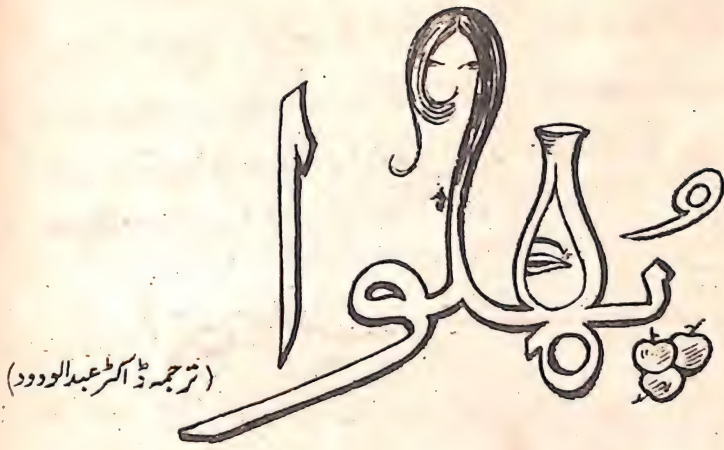 پُھلوا
(ترجمہ ڈاکٹر عبدالودود)